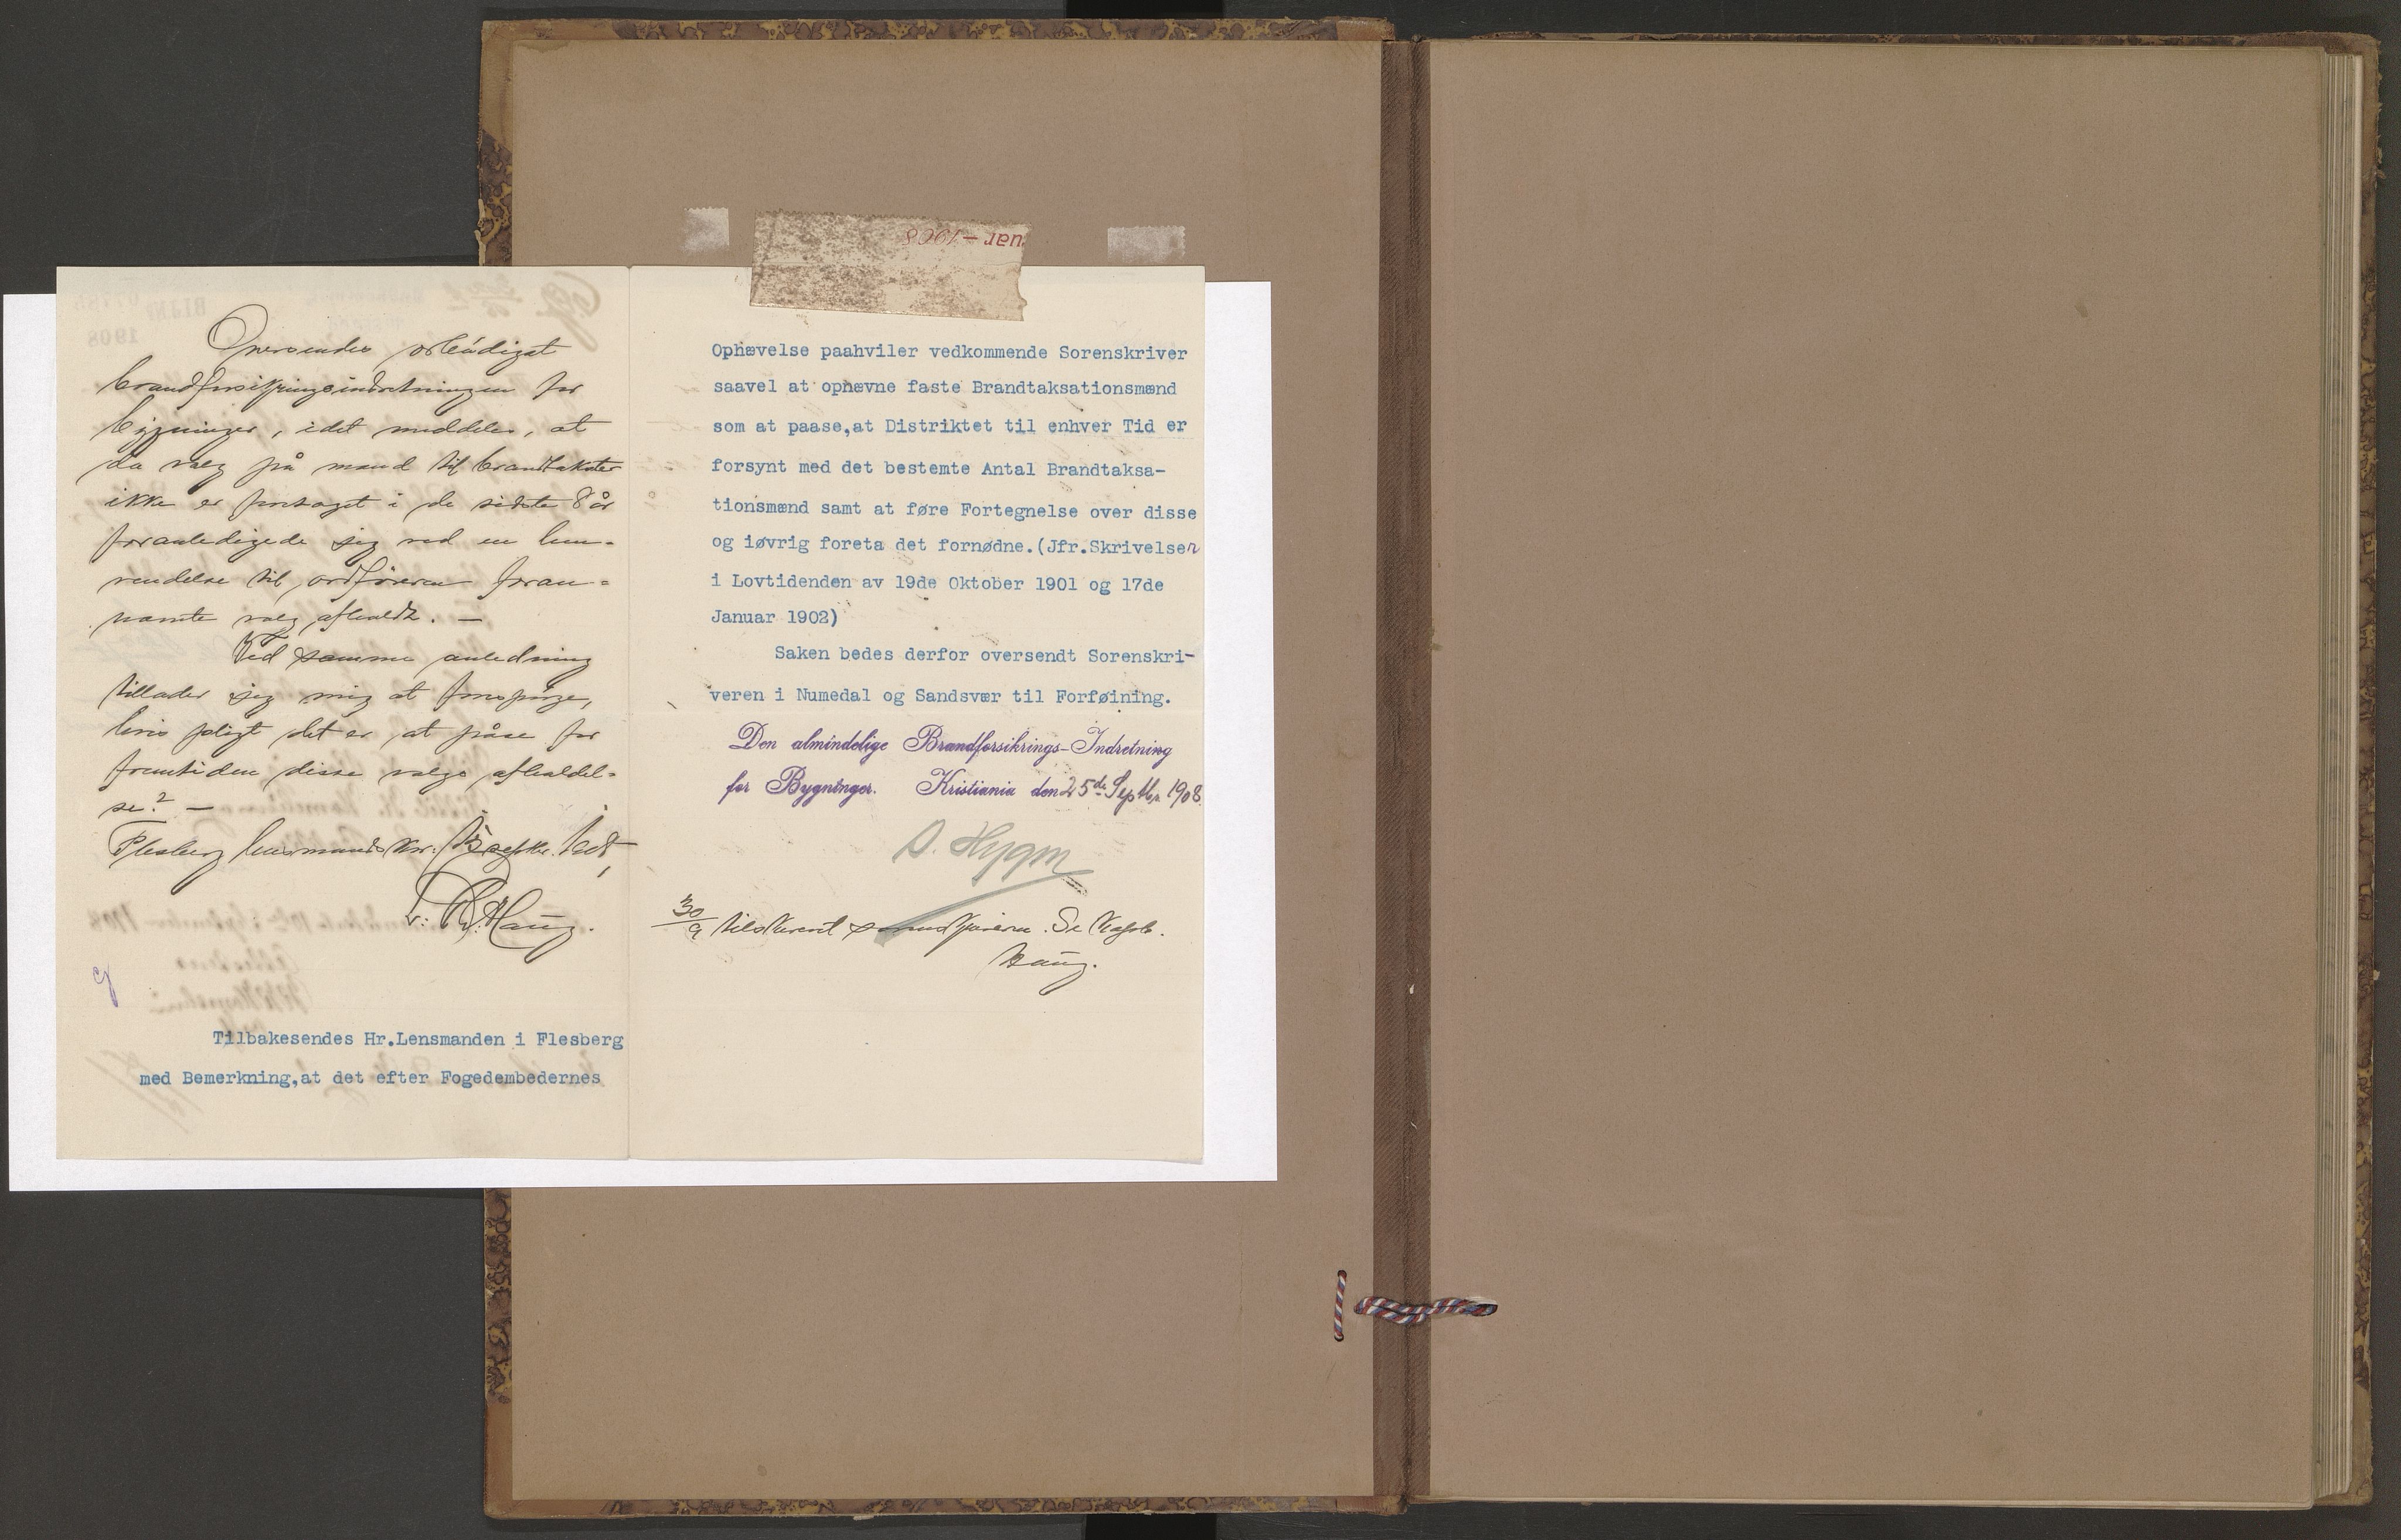 Oversendes ærbødigst
brandforsikringsindretningen for
bygninger, idet meddeles, at
da valg på mænd til brandtakster
ikke er foretaget i de sidste 8 år
foranledigede jeg ved en hen-
vendelse til ordføreren foran-
nævnte valg afholdt. —
Ved samme anledning
tillader jeg mig at forespørge,
hvis pligt det er at påse for
fremtiden disse valgs afholdel-
se? —
Flesberg lensmandskr. septbr.
Haug.
Tilbakesendes Hr.Lensmanden i Flesberg
med Bemerkning,at det efter Fogedembedernes
uar – 1908
Ophævelse paahviler vedkommende Sorenskriver
saavel at ophævne faste Brandtaksationsmænd
som at paase,at Distriktet til enhver Tid er
forsynt med det bestemte Antal Brandtaksa-
tionsmænd samt at føre Fortegnelse over disse
og iøvrig foreta det fornødne.(Jfr.Skrivelser
i Lovtidenden av 19de Oktober 1901 og 17de
Januar 1902)
Saken bedes derfor oversendt Sorenskri-
veren i Numedal og Sandsvær til Forføining.
Den almindelige Brandforsikrings-Indretning
for Bygninger. Kristiania den 25de Septbr. 1908.
30/9 tilskrevet sorenskriveren. Se
Haug.